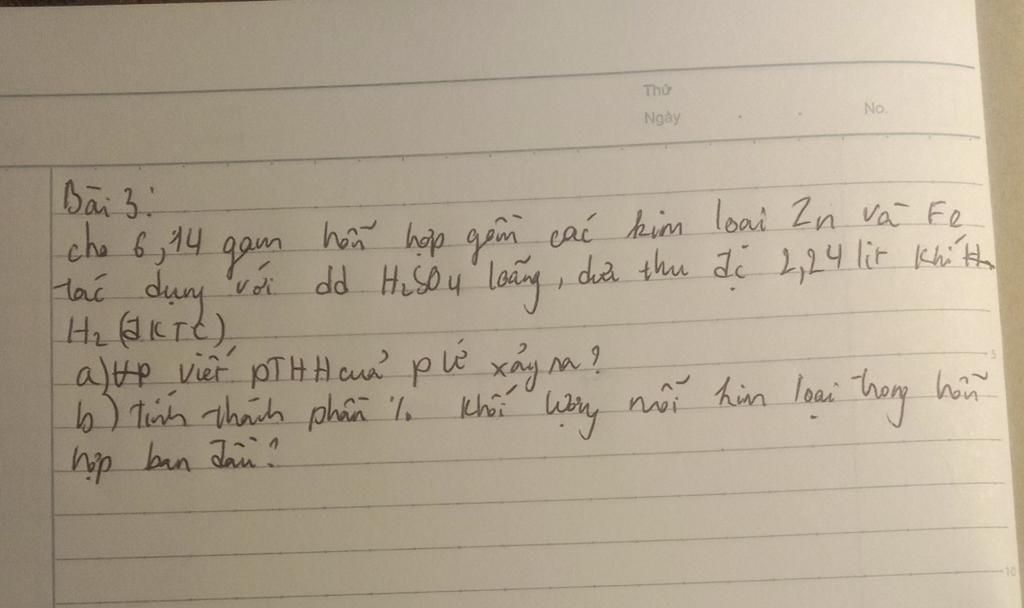 Thứ
Ngày
No.
Bài 3:
cho 6,14 gam hỗn hợp gồm các kim loai Zn và Fe
tác dụng với dd H₂SO₄ loãng, dưa thu đc 2,24 lit khí H
H₂ (ĐKTC)
a) Viết PTHH cuả p ứ xảy ra?
b) Tính thành phần % khối lượng mỗi kim loại trong hỗn
hợp ban đầu?
5
10